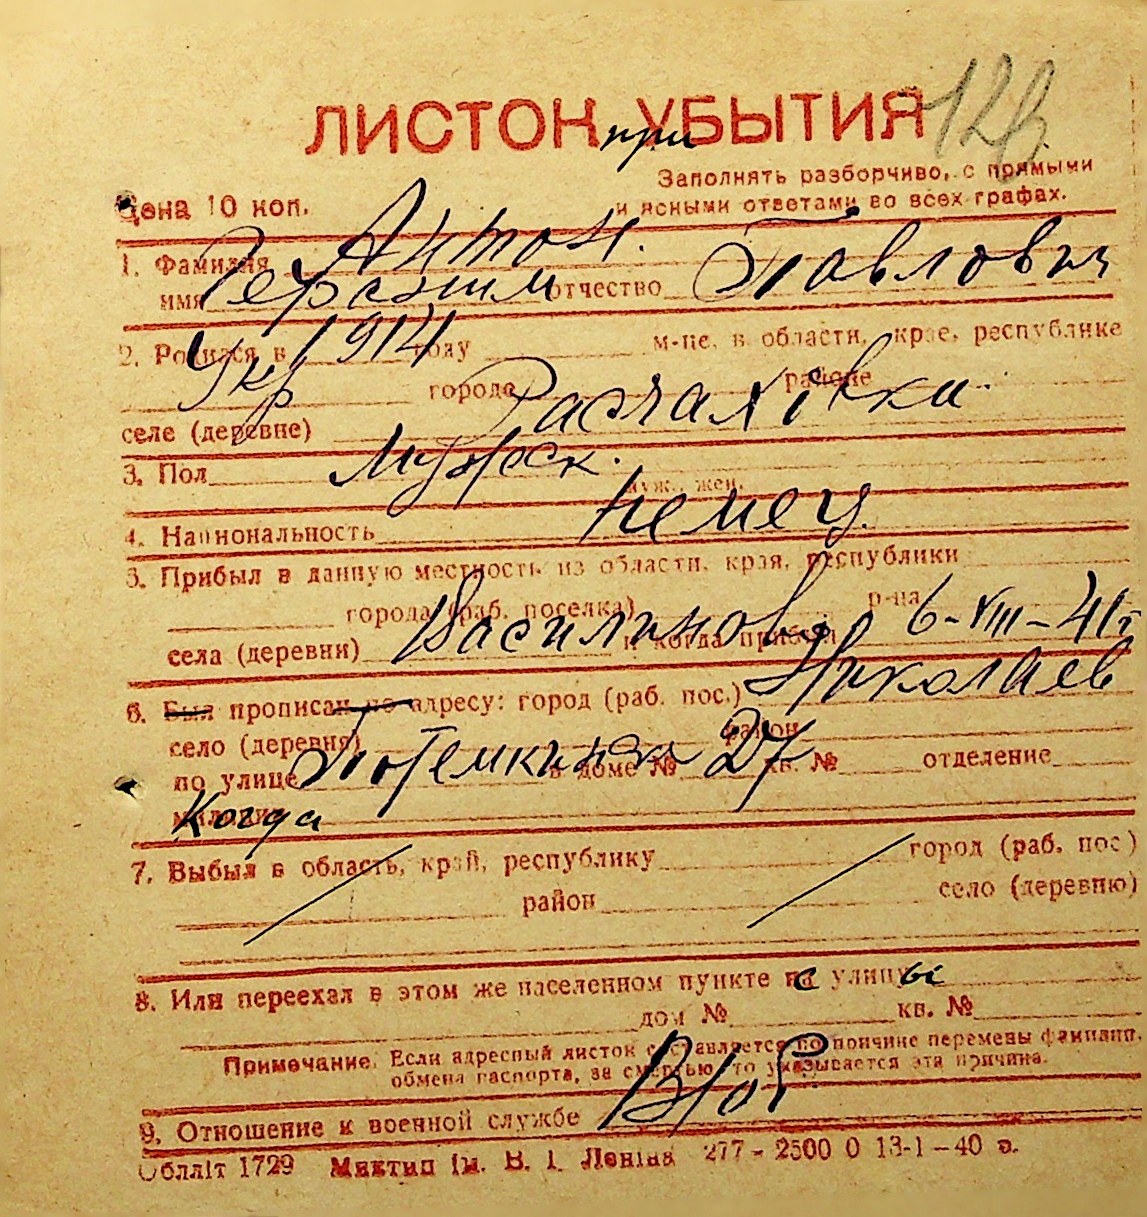 128.
ЛИСТОК при УБЫТИЯ
Цена 10 коп.
Заполнять разборчиво, с прямыми
и ясными ответами во всех графах.
1. Фамилия Антон.
имя Герасим отчество Павлович
2. Родился в 1914 году м-це, в области, крае, республике
Укр городе районе
селе (деревне)
3. Пол Мужеск.
муж., жен.
4. Национальность немец
5. Прибыл в данную местность из области, края, республики
города (раб. поселка) р-на
села (деревни) Василиново и когда прибыл 6-VIII-41г
6. Был прописан по адресу: город (раб. пос.) Николаев
село (деревня) район
по улице Потемкинская в доме № 27 кв. № отделение
милиции Когда
7. Выбыл в область, край, республику город (раб. пос.)
район село (деревню)
8. Или переехал в этом же населенном пункте с улицы
дом № кв. №
Примечание. Если адресный листок составляется по причине перемены фамилии,
обмена паспорта, за смертью, то указывается эта причина.
9. Отношение к военной службе В/об
Облліт 1729 Миктип ім. В. І. Леніна 277-2500 0 13-1-40 э.